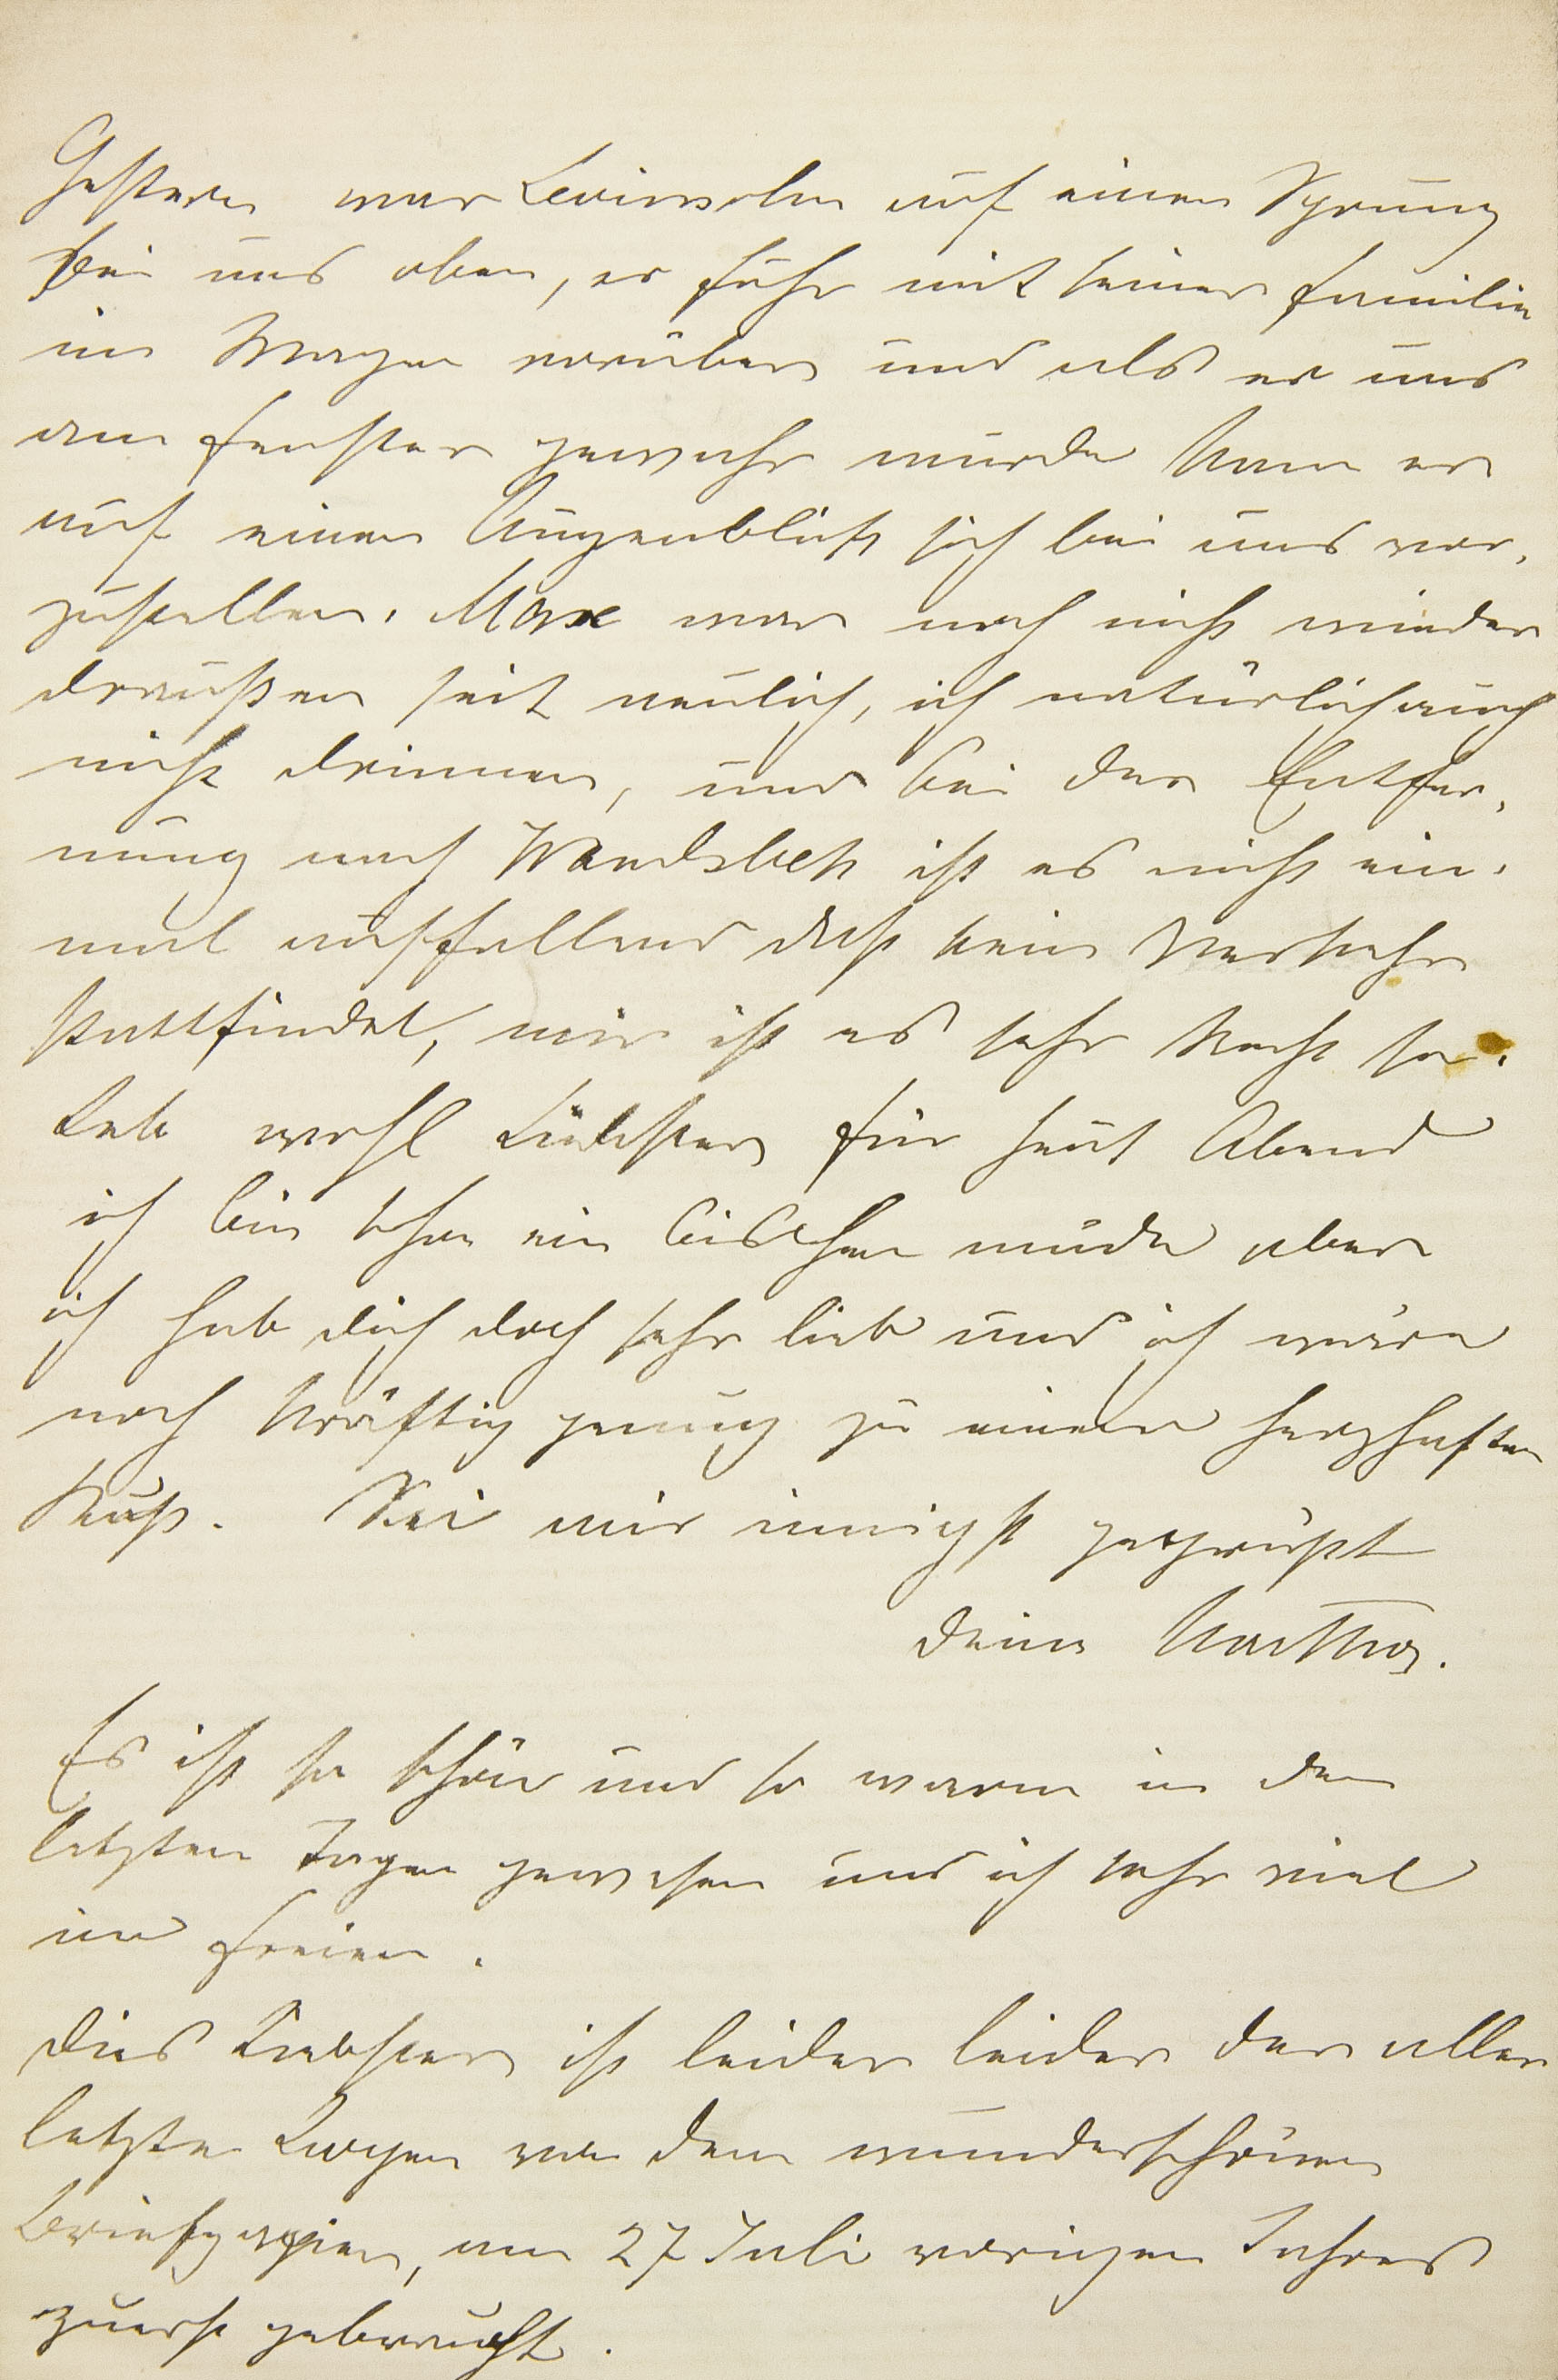 Gestern war Levinsohn auf einen Sprung
bei uns oben, er fuhr mit seiner Familie
im Wagen vorüber und als er uns
am Fenster gewahr wurde kam er
auf einen Augenblick sich bei uns vor,
zustellen. Max war noch nicht wieder
draußen seit neulich, ich natürlich auch
nicht drinnen, und bei der Entfer,
nung nach Wandsbek ist es nicht ein,
mal auffallend daß kein Verkehr
stattfindet, mir ist es sehr Recht so.
Leb wohl Liebster für heut Abend
ich bin schon ein bischen müde aber
ich hab dich doch sehr lieb und ich wäre
noch kräftig genug zu einem herzhaften
Kuß. Sei mir innigst gegrüßt
deine Martha.
Es ist so schön und so warm in den
letzten Tagen gewesen und ich sehr viel
im Freien.
Dies Liebster ist leider leider der aller
letzte Bogen von dem wunderschönen
Briefpapier, am 27 Juli vorigen Jahres
zuerst gebraucht.